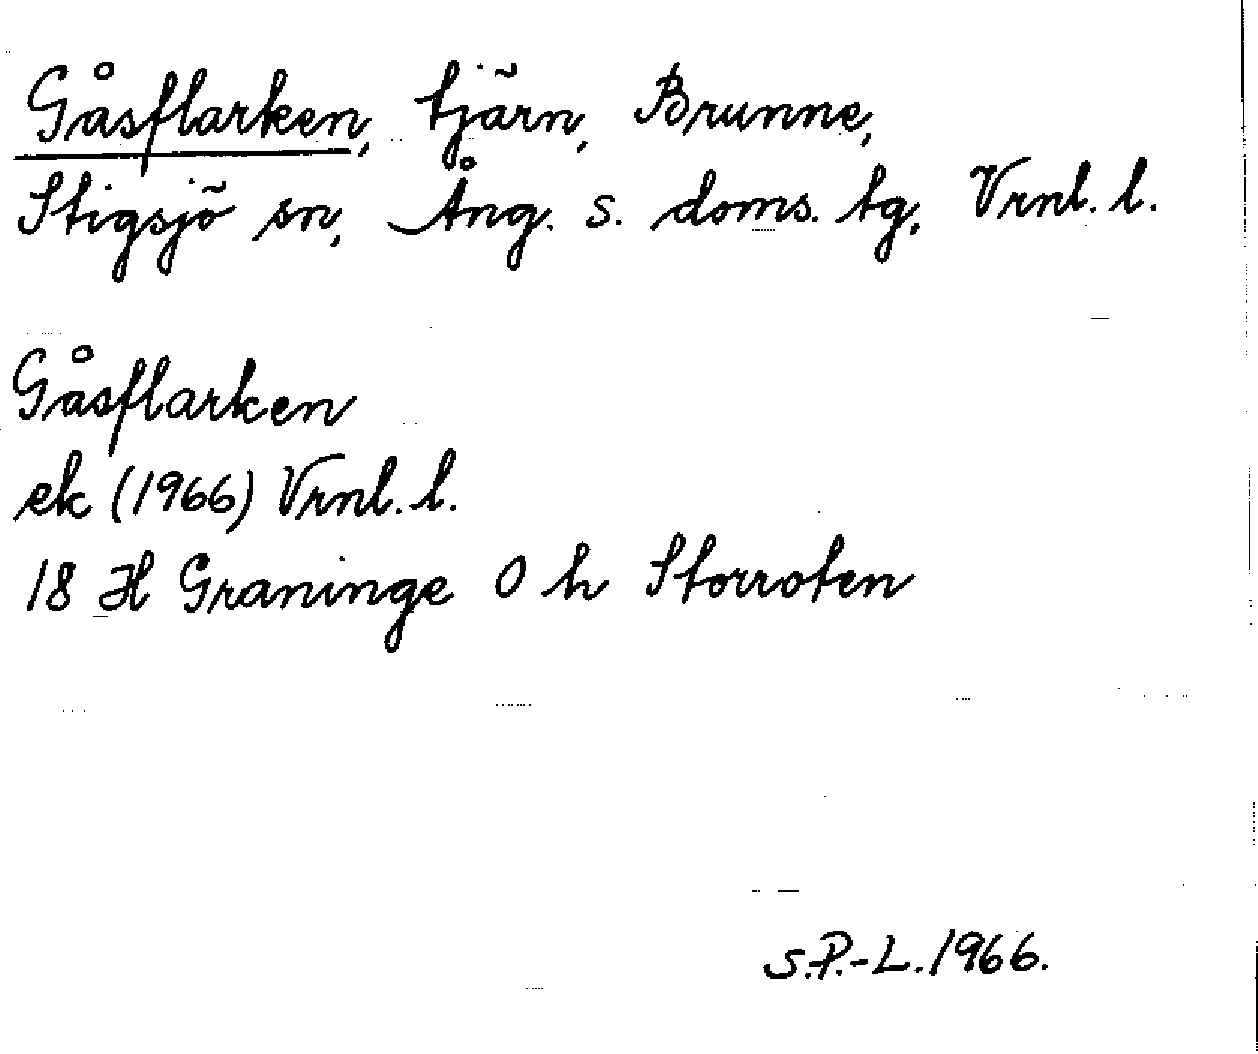 Gåsflarken, tjärn, Brunne,
Stigsjö sn, Ång. s. doms. tg, Vrnl. l.
Gåsflarken
ek (1966) Vrnl. l.
18 H Graninge O h Storroten
S.P.-L. 1966.